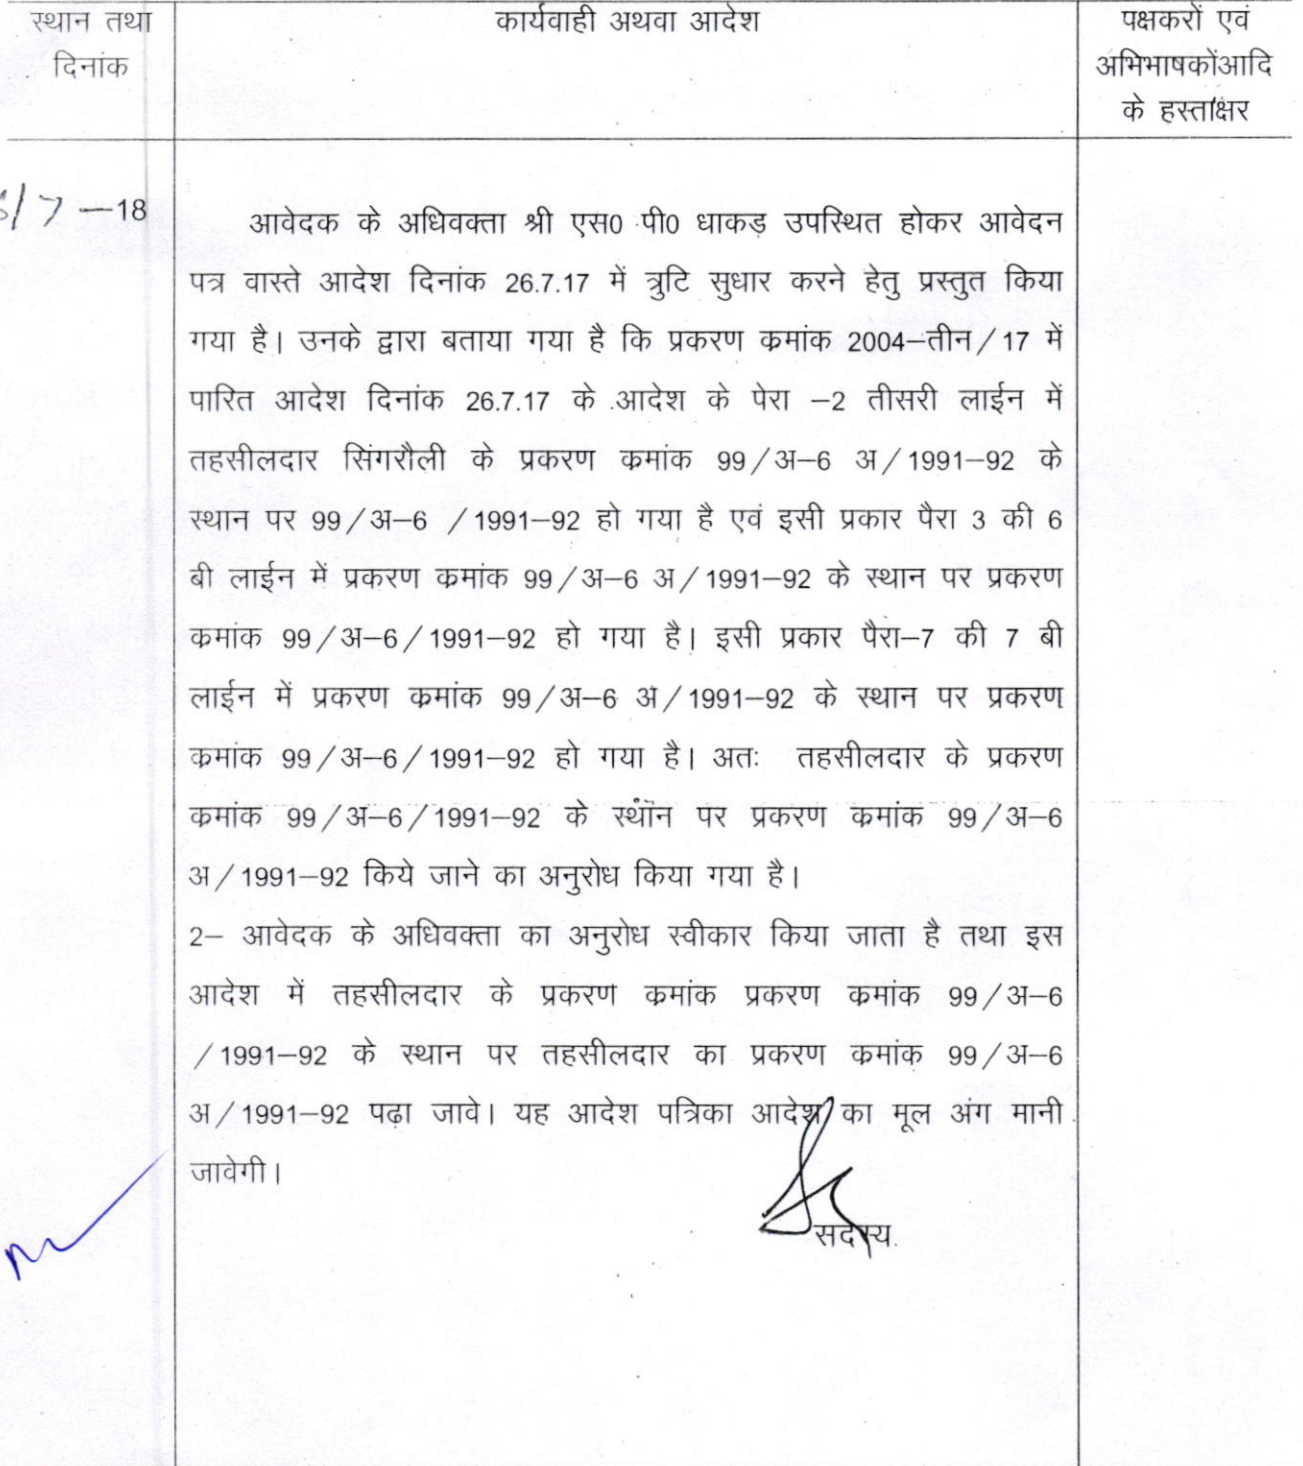 स्थान तथा
दिनांक
कार्यवाही अथवा आदेश
पक्षकरों एवं
अभिभाषकोंआदि
के हस्ताक्षर
/7 –18
आवेदक के अधिवक्ता श्री एस0 पी0 धाकड़ उपस्थित होकर आवेदन
पत्र वास्ते आदेश दिनांक 26.7.17 में त्रुटि सुधार करने हेतु प्रस्तुत किया
गया है। उनके द्वारा बताया गया है कि प्रकरण कमांक 2004–तीन/17 में
पारित आदेश दिनांक 26.7.17 के आदेश के पेरा –2 तीसरी लाईन में
तहसीलदार सिंगरौली के प्रकरण कमांक 99/अ–6 अ/1991–92 के
स्थान पर 99/अ–6 /1991–92 हो गया है एवं इसी प्रकार पैरा 3 की 6
बी लाईन में प्रकरण कमांक 99/अ–6 अ/1991–92 के स्थान पर प्रकरण
कमांक 99/अ–6/1991–92 हो गया है। इसी प्रकार पैरा–7 की 7 बी
लाईन में प्रकरण कमांक 99/अ–6 अ/1991–92 के स्थान पर प्रकरण
कमांक 99/अ–6/1991–92 हो गया है। अतः तहसीलदार के प्रकरण
कमांक 99/अ–6/1991–92 के स्थान पर प्रकरण कमांक 99/अ–6
अ/1991–92 किये जाने का अनुरोध किया गया है।
2– आवेदक के अधिवक्ता का अनुरोध स्वीकार किया जाता है तथा इस
आदेश में तहसीलदार के प्रकरण कमांक प्रकरण कमांक 99/अ–6
/1991–92 के स्थान पर तहसीलदार का प्रकरण कमांक 99/अ–6
अ/1991–92 पढ़ा जावे। यह आदेश पत्रिका आदेश का मूल अंग मानी
जावेगी।
सदस्य